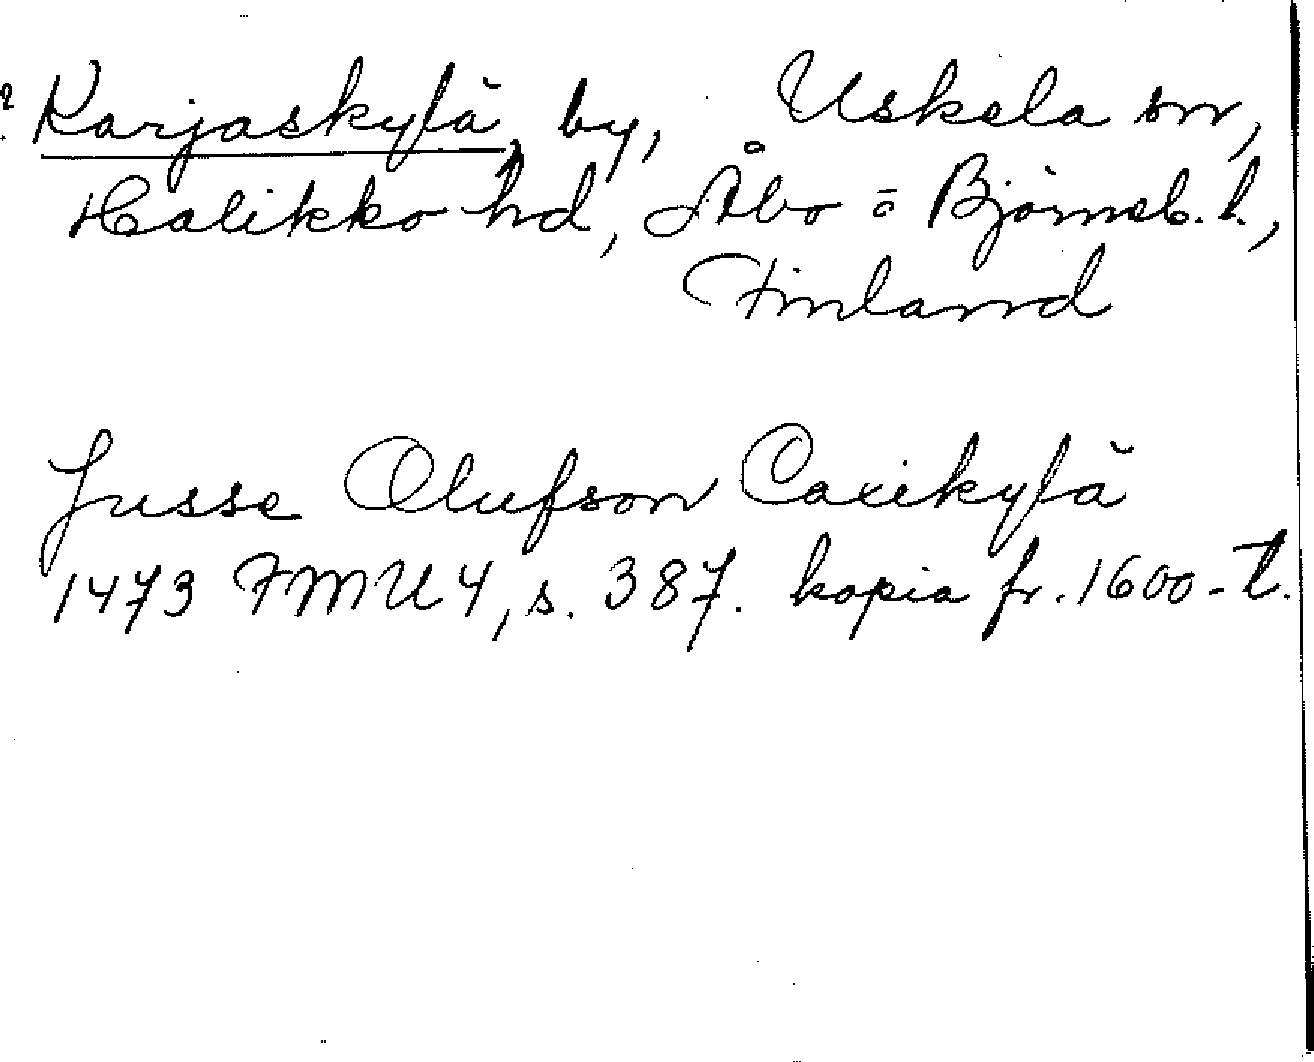 ? Karjaskylä by, Uskela sn,
Halikko hd, Åbo = Björneb. l.,
Finland
Jusse Olufson Caxikylä
1473 FMU 4, s. 387. kopia fr. 1600-t.